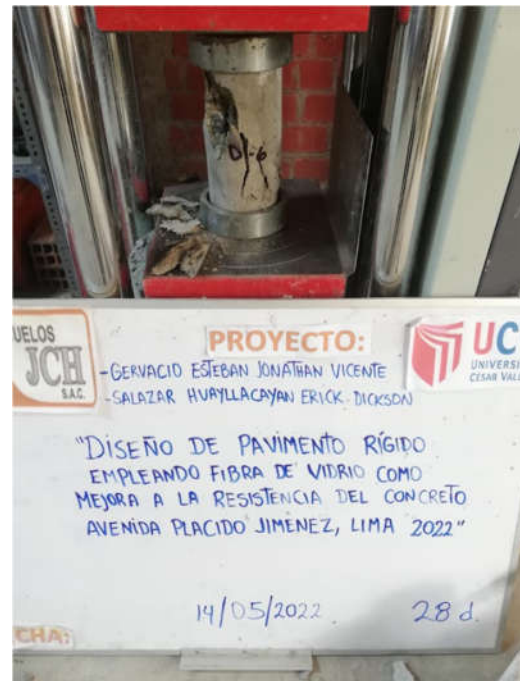 D1-6
UELOS
JCH
S.A.C.
PROYECTO:
UC
UNIVERSI
CESAR VALL
-GERVACIO ESTEBAN JONATHAN VICENTE
-SALAZAR HUAYLLACAYAN ERICK DICKSON
"DISEÑO DE PAVIMENTO RÍGIDO
EMPLEANDO FIBRA DE VIDRIO COMO
MEJORA A LA RESISTENCIA DEL CONCRETO
AVENIDA PLACIDO JIMENEZ, LIMA 2022"
14/05/2022 28 d.
CHA: